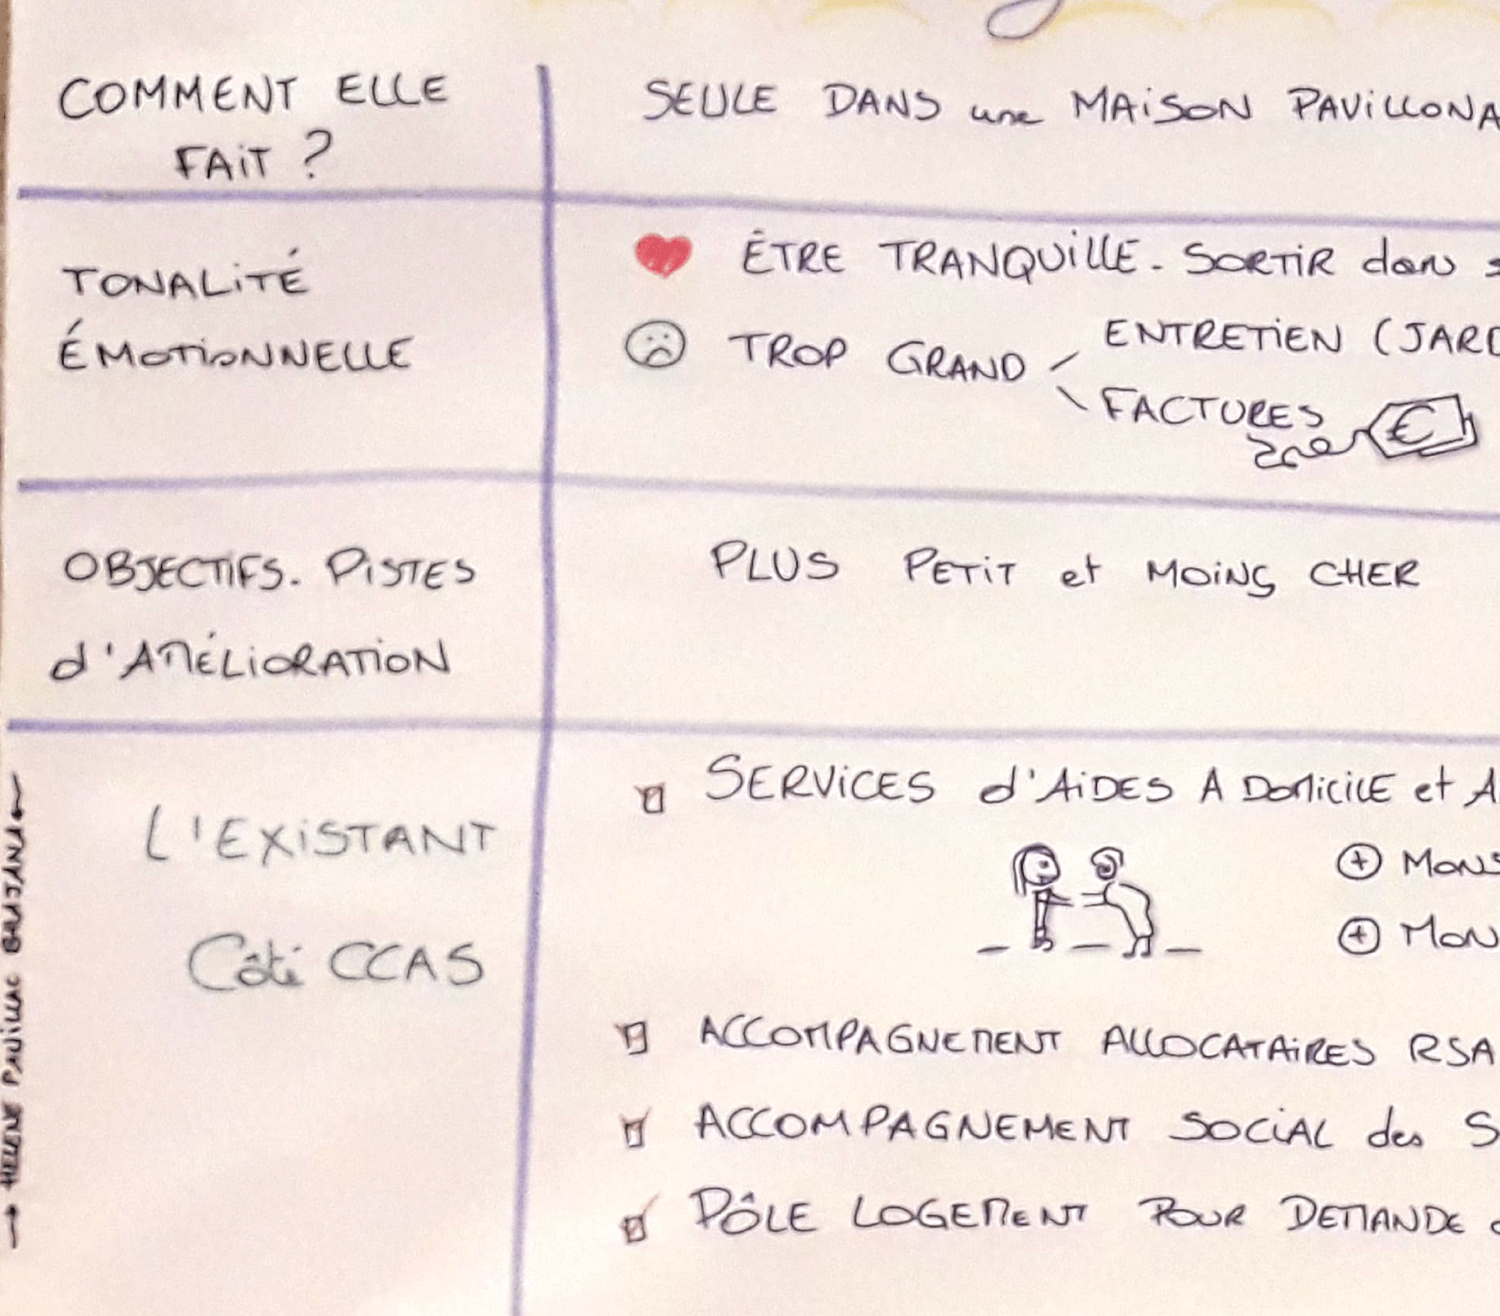 COMMENT ELLE
FAIT ?
SEULE DANS une MAISON PAVILLONA
TONALITÉ
ÉMOTIONNELLE
ÊTRE TRANQUILLE. SORTIR dans s
TROP GRAND
ENTRETIEN (JARD
FACTURES
€
OBJECTIFS. PISTES
d'AMÉLIORATION
PLUS PETIT et MOINS CHER
L'EXISTANT
Côté CCAS
SERVICES d'AIDES A DOMICILE et A
+ MONS
+ MON
ACCOMPAGNEMENT ALLOCATAIRES RSA
ACCOMPAGNEMENT SOCIAL des S
PÔLE LOGEMENT POUR DEMANDE
→ HELENE PAUILLAC